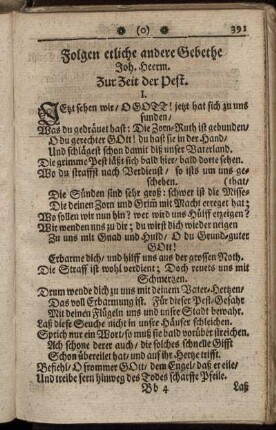 (o) 391
Folgen etliche andere Gebethe
Joh. Heerm.
Zur Zeit der Pest.
I.
JEtzt sehen wir/ O GOTT! jetzt hat sich zu uns
funden/
Was du gedräuest hast: Die Zorn-Ruth ist gebunden/
O du gerechter GOtt! du hast sie in der Hand/
Und schlägest schon damit diß unser Vaterland.
Die grimme Pest läßt sich bald hier/ bald dorte sehen.
Wo du straffst nach Verdienst/ so ists um uns ge-
schehen. (that/
Die Sünden sind sehr groß: schwer ist die Misse-
Die deinen Zorn und Grim mit Macht erreget hat;
Wo sollen wir nun hin? wer wird uns Hülff erzeigen?
Wir wenden uns zu dir; du wirst dich wieder neigen
Zu uns mit Gnad und Huld/ O du Grund-guter
GOtt!
Erbarme dich/ und hilff uns aus der grossen Noth.
Die Straff ist wohl verdient; Doch reuets uns mit
Schmertzen.
Drum wende dich zu uns mit deinem Vater-Hertzen/
Das voll Erbarmung ist. Für dieser Pest-Gefahr
Mit deinen Flügeln uns und unsre Stadt bewahr.
Laß diese Seuche nicht in unsre Häuser schleichen.
Sprich nur ein Wort/ so muß sie bald vorüber streichen.
Ach schone derer auch/ die solches schnelle Gifft
Schon übereilet hat/ und auf ihr Hertze trifft.
Befiehl/ O frommer GOtt/ dem Engel/ daß er eile/
Und treibe fern hinweg des Todes scharffe Pfeile.
Bb 4 Laß